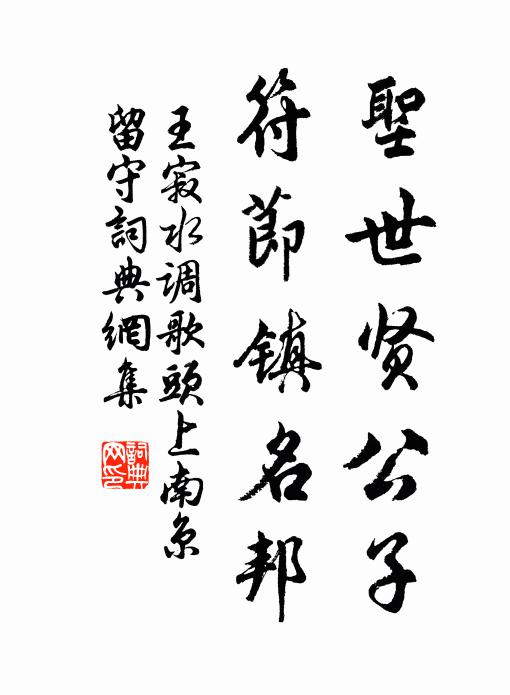 聖世贤公子
符節镇名邦
王寂水调歌頭上南京
留守詞典網集
詞典网印